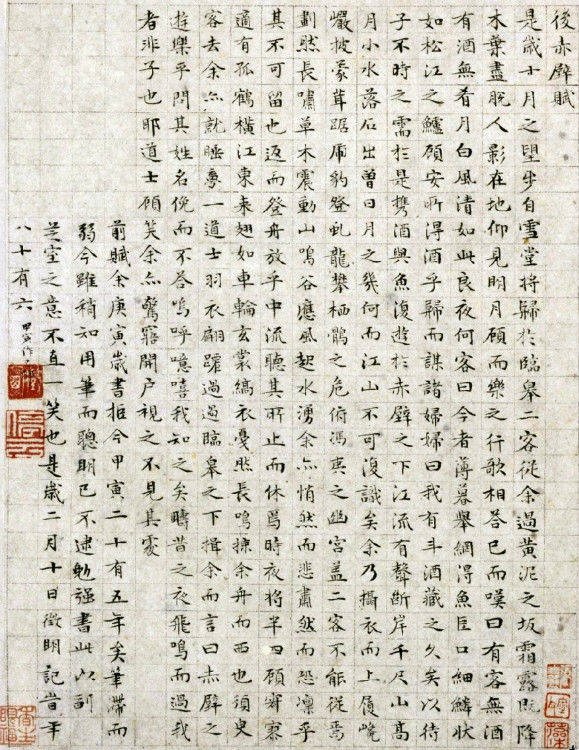 後赤壁賦
是歲十月之望步自雪堂將歸於臨皋二客從余過黃泥之坂霜露既降
木葉盡脫人影在地仰見明月顧而樂之行歌相答已而嘆曰有客無酒
有酒無肴月白風清如此良夜何客曰今者薄暮舉網得魚巨口細鱗狀
如松江之鱸顧安所得酒乎歸而謀諸婦婦曰我有斗酒藏之久矣以待
子不時之需於是攜酒與魚復遊於赤壁之下江流有聲斷岸千尺山高
月小水落石出曾日月之幾何而江山不可復識矣余乃攝衣而上履巉
巖披蒙茸踞虎豹登虬龍攀栖鶻之危俯馮夷之幽宮蓋二客不能從焉
劃然長嘯草木震動山鳴谷應風起水湧余亦悄然而悲肅然而恐凜乎
其不可留也返而登舟放乎中流聽其所止而休焉時夜將半四顧寂寥
適有孤鶴橫江東來翅如車輪玄裳縞衣戛然長鳴掠余舟而西也須臾
客去余亦就睡夢一道士羽衣翩躚過過臨皋之下揖余而言曰赤壁之
遊樂乎問其姓名俛而不答嗚呼噫嘻我知之矣疇昔之夜飛鳴而過我
者非子也耶道士顧笑余亦驚寤開戶視之不見其處
前賦余庚寅歲書拒今甲寅二十有五年矣筆滯而
弱今雖稍知用筆而聰明已不逮勉強書此以副
芝室之意不直一笑也是歲二月十日徵明記峕年
八十有六